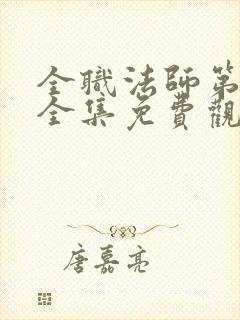 全職法師第
全集免費觀
唐嘉亮